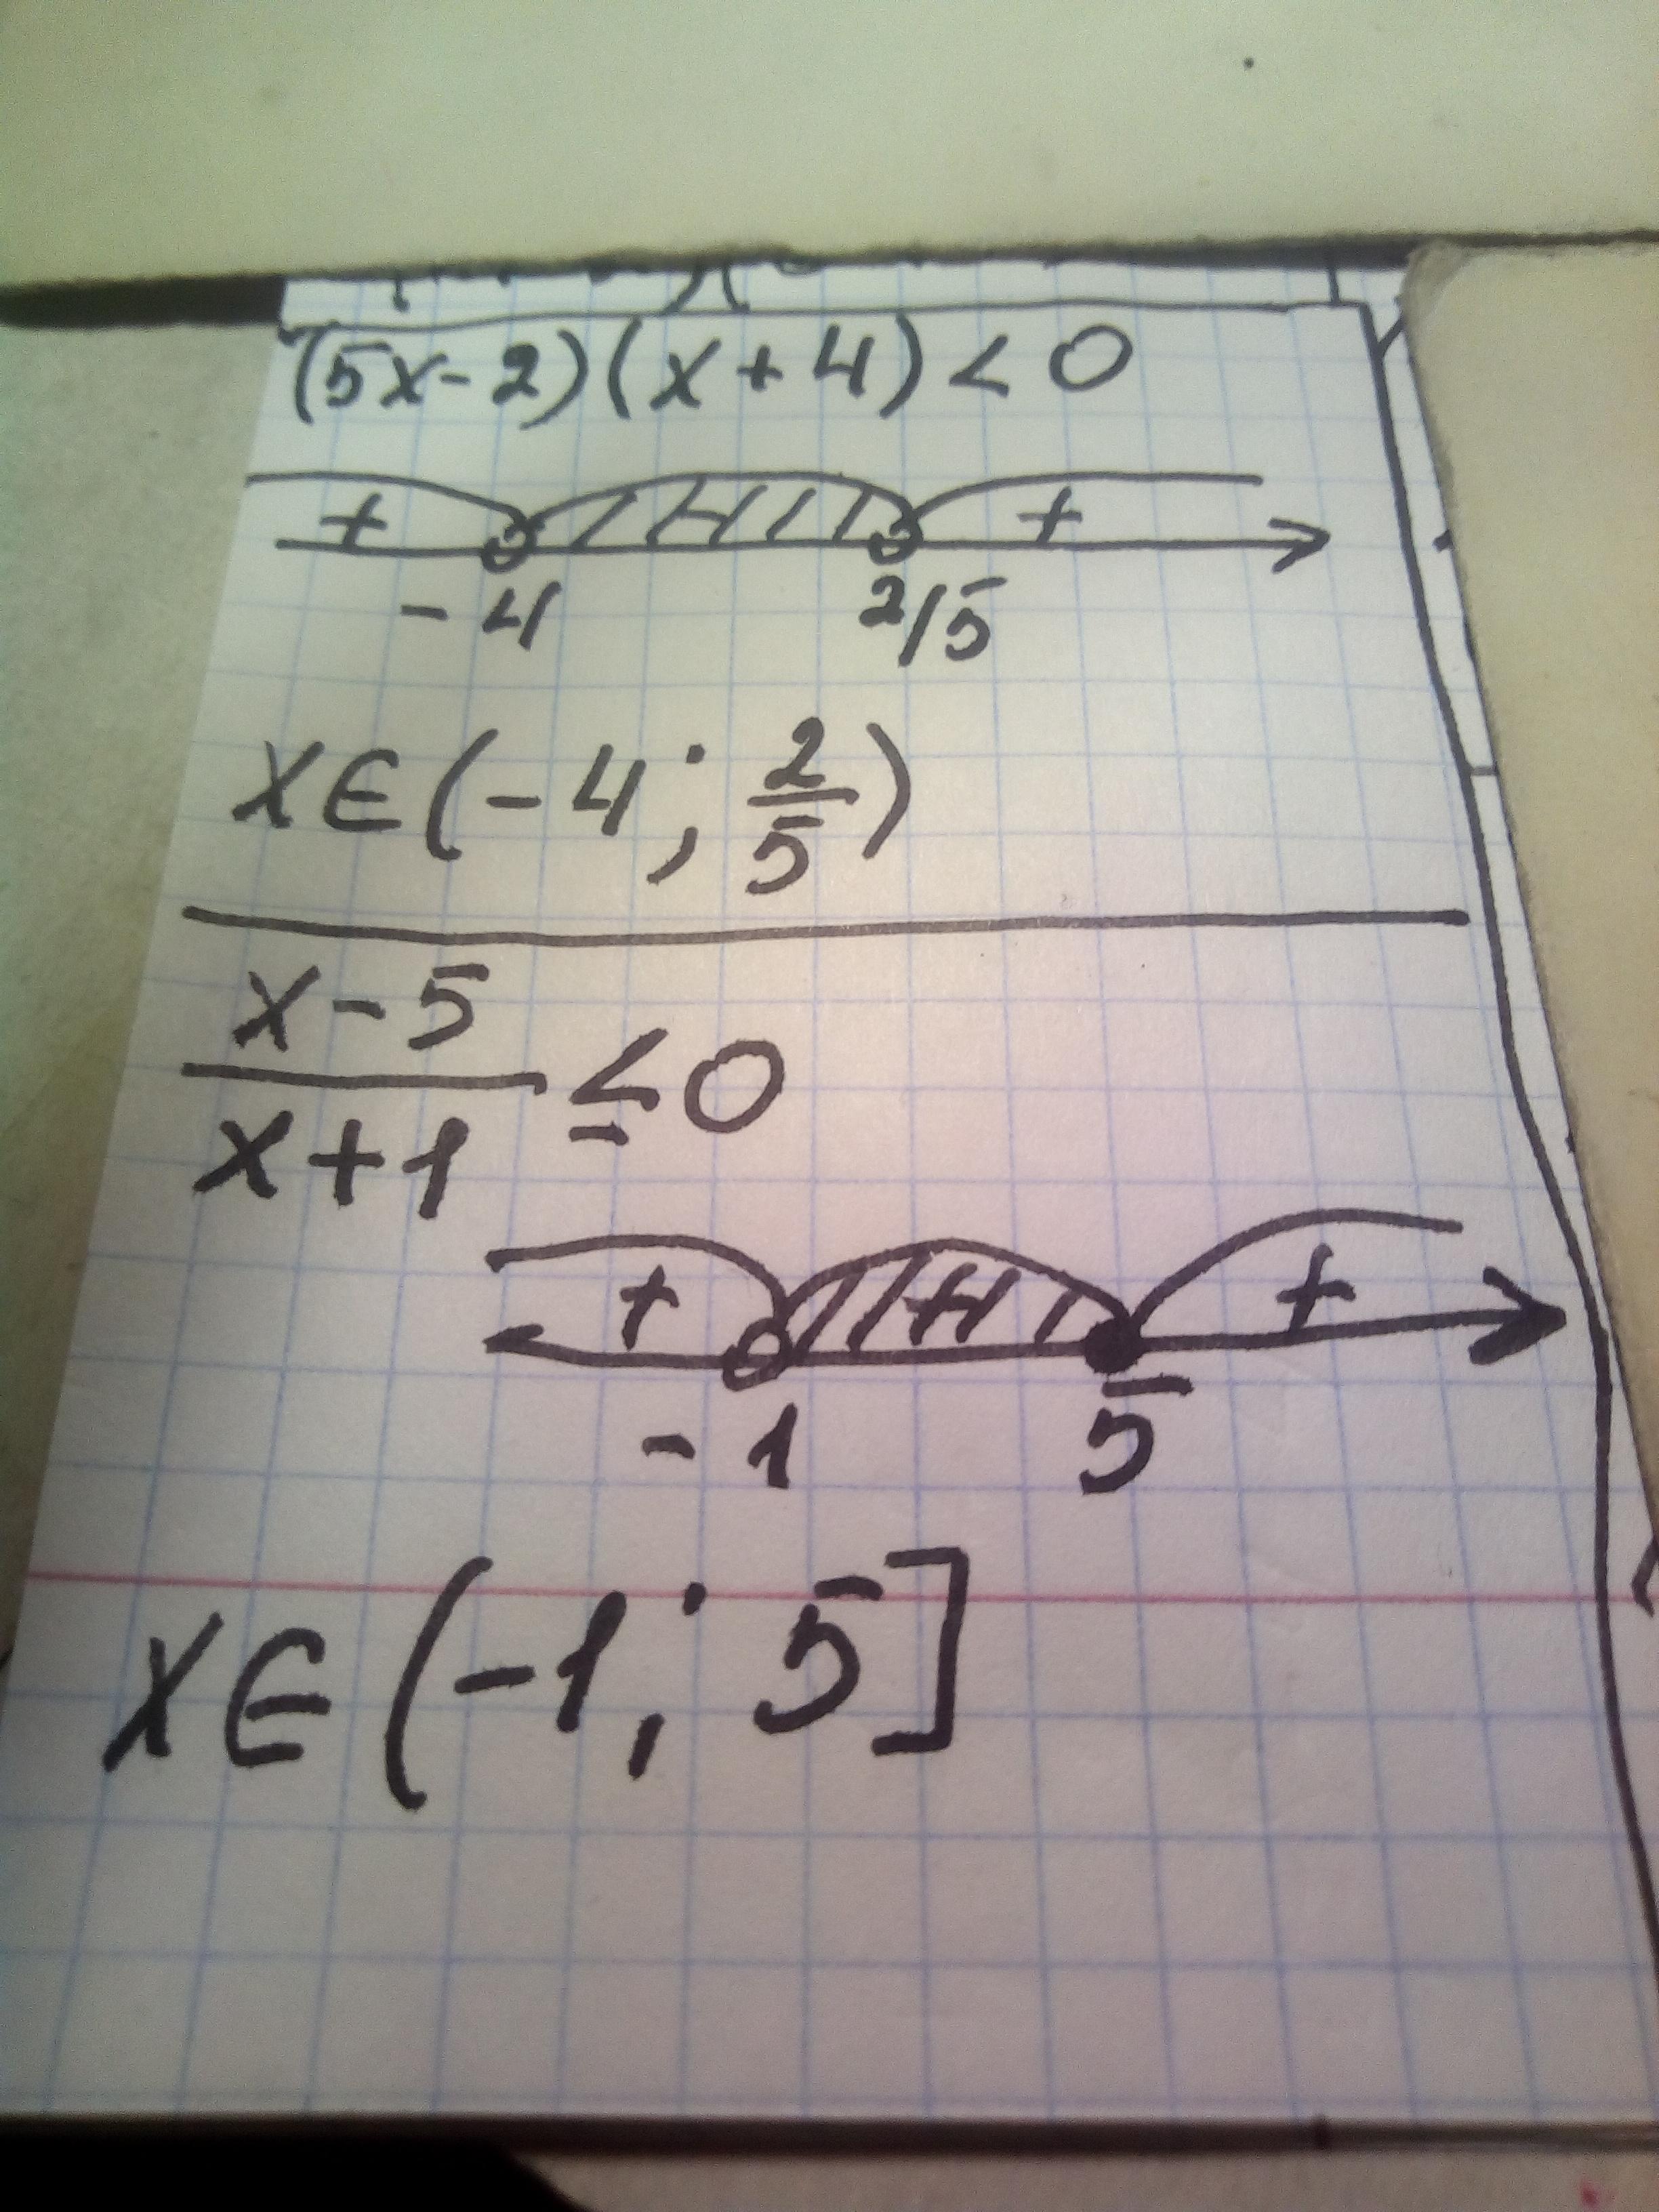 (5x-2)(x+4)<0
+ - +
-4 2/5
x∈(-4; 2/5)
x-5
x+1 ≤0
+ - +
-1 5
x∈(-1; 5]